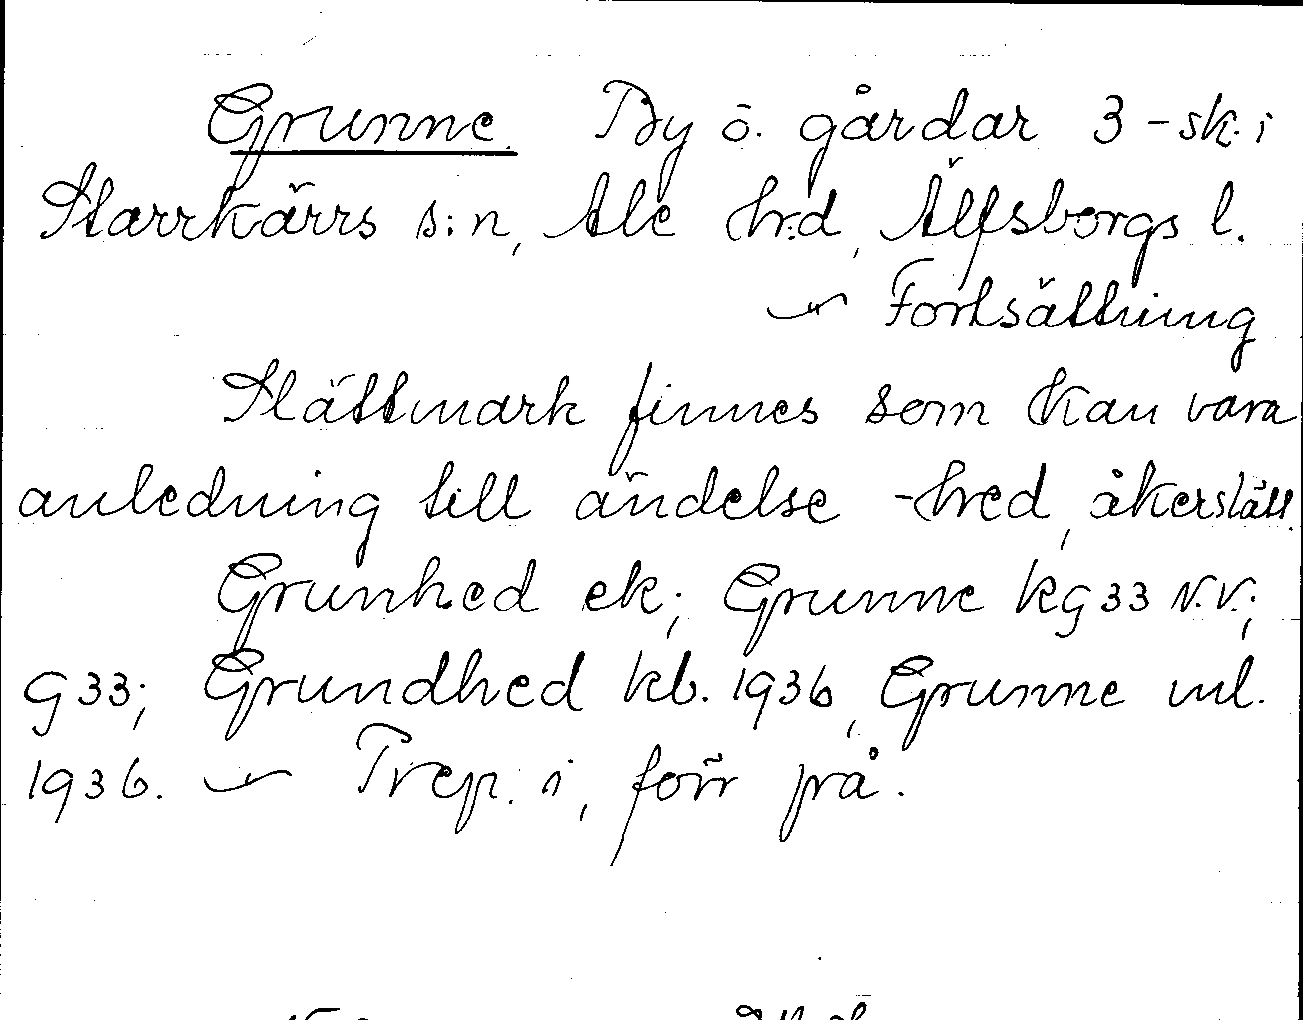 Grunne. By o. gårdar 3-sk. i
Starrkärrs s:n, Ale hrd, Älfsborgs l.
~ Fortsättning
Slättmark finnes som kan vara
anledning till ändelse -hed, åkerslätt.
Grunhed ek; Grunne kg 33 N.V.;
g 33; Grundhed kb. 1936, Grunne ml.
1936. ~ Prep. i, förr på.